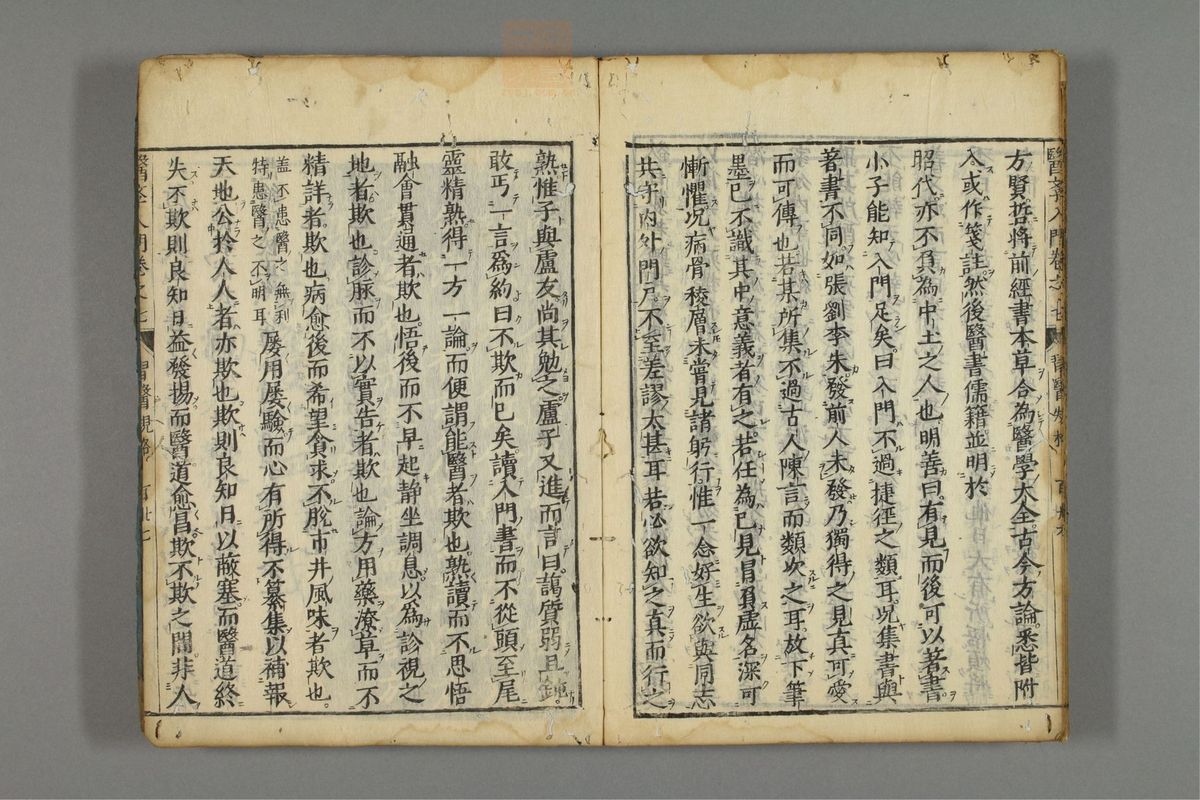 方賢哲將前經書本草合為醫學大全古今方論悉皆附
入或作箋註然後醫書儒籍並明於
昭代亦不負為中土之人也明善曰有見而後可以著書
小子能知入門足矣曰入門不過捷徑之類耳况集書與
著書不同如張劉李朱發前人未發乃獨得之見真可愛
而可傳也若某所集不過古人陳言而類次之耳放下筆
墨已不識其中意義者有之若任為己見冒負虛名深可
慚懼况病骨稜層未嘗見諸躬行惟一念好生欲與同志
共守內外門戶不至差謬太甚耳若必欲知之真而行之
熟惟子與盧友尚其勉之盧子又進而言曰謁質弱且
敢丐一言為約曰不欺而已矣讀入門書而不從頭至尾
靈精熟得一方一論而便謂能醫者欺也熟讀而不思悟
融會貫通者欺也悟後而不早起静坐調息以為診視之
地者欺也診脉而不以實告者欺也論方用藥潦草而不
精詳者欺也病愈後而希望貪求不脫市井風味者欺也
盖不患醫之無利
特患醫之不明耳
屡用屡驗而心有所得不纂集以補報
天地公於人人者亦欺也欺則良知日以蔽塞而醫道終
失不欺則良知日益發揚而醫道愈昌欺不欺之間非人